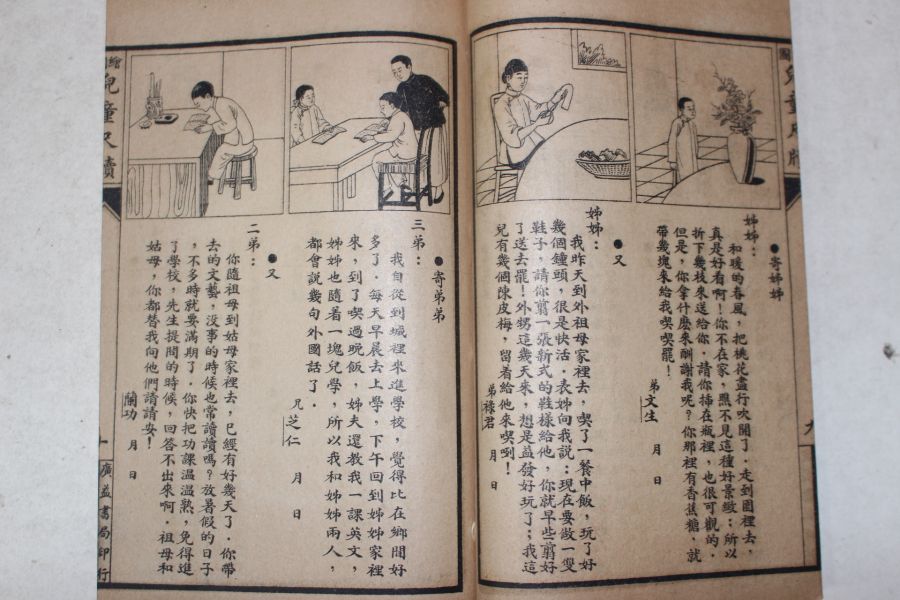 ●寄姊姊
姊姊：
和暖的春風，把桃花盡行吹開了．走到園裡去，
真是好看啊！你不在家，瞧不見這種好景緻；所以
折下幾枝來送給你．請你揷在瓶裡，也很可觀的．
但是，你拿什麼來酬謝我呢？你那裡有香蕉糖，就
帶幾塊來給我喫喫罷！
弟文生　月　日
●又
姊姊：
我昨天到外祖母家裡去，喫了一餐中飯，玩了好
幾個鐘頭，很是快活．表姊向我說：現在要做一雙
鞋子，請你剪一張新式的鞋樣給他，你就早些剪好
了送去罷！外甥這幾天來，想是益發好玩了；我這
兒有幾個陳皮梅，留着給他來喫咧！
弟祿君　月　日
●寄弟弟
三弟：
我自從到城裡來進學校，覺得比在鄉間好
多了．每天早晨去上學，下午回到姊姊家裡
來，到了喫過晚飯，姊夫還教我一課英文，
姊姊也隨着一塊兒學，所以我和姊姊兩人，
都會說幾句外國話了．
兄芝仁　月　日
●又
二弟：
你隨祖母到姑母家裡去，已經有好幾天了．你帶
去的文藝，沒事的時候也當讀讀嗎？放暑假的日子
，不多時就要滿期了．你快把功課溫溫熟，免得進
了學校，先生提問的時候，回答不出來啊．祖母和
姑母，你都替我向他們請請安！
蘭功　月　日
繪
兒童尺牘
廣益書局印行